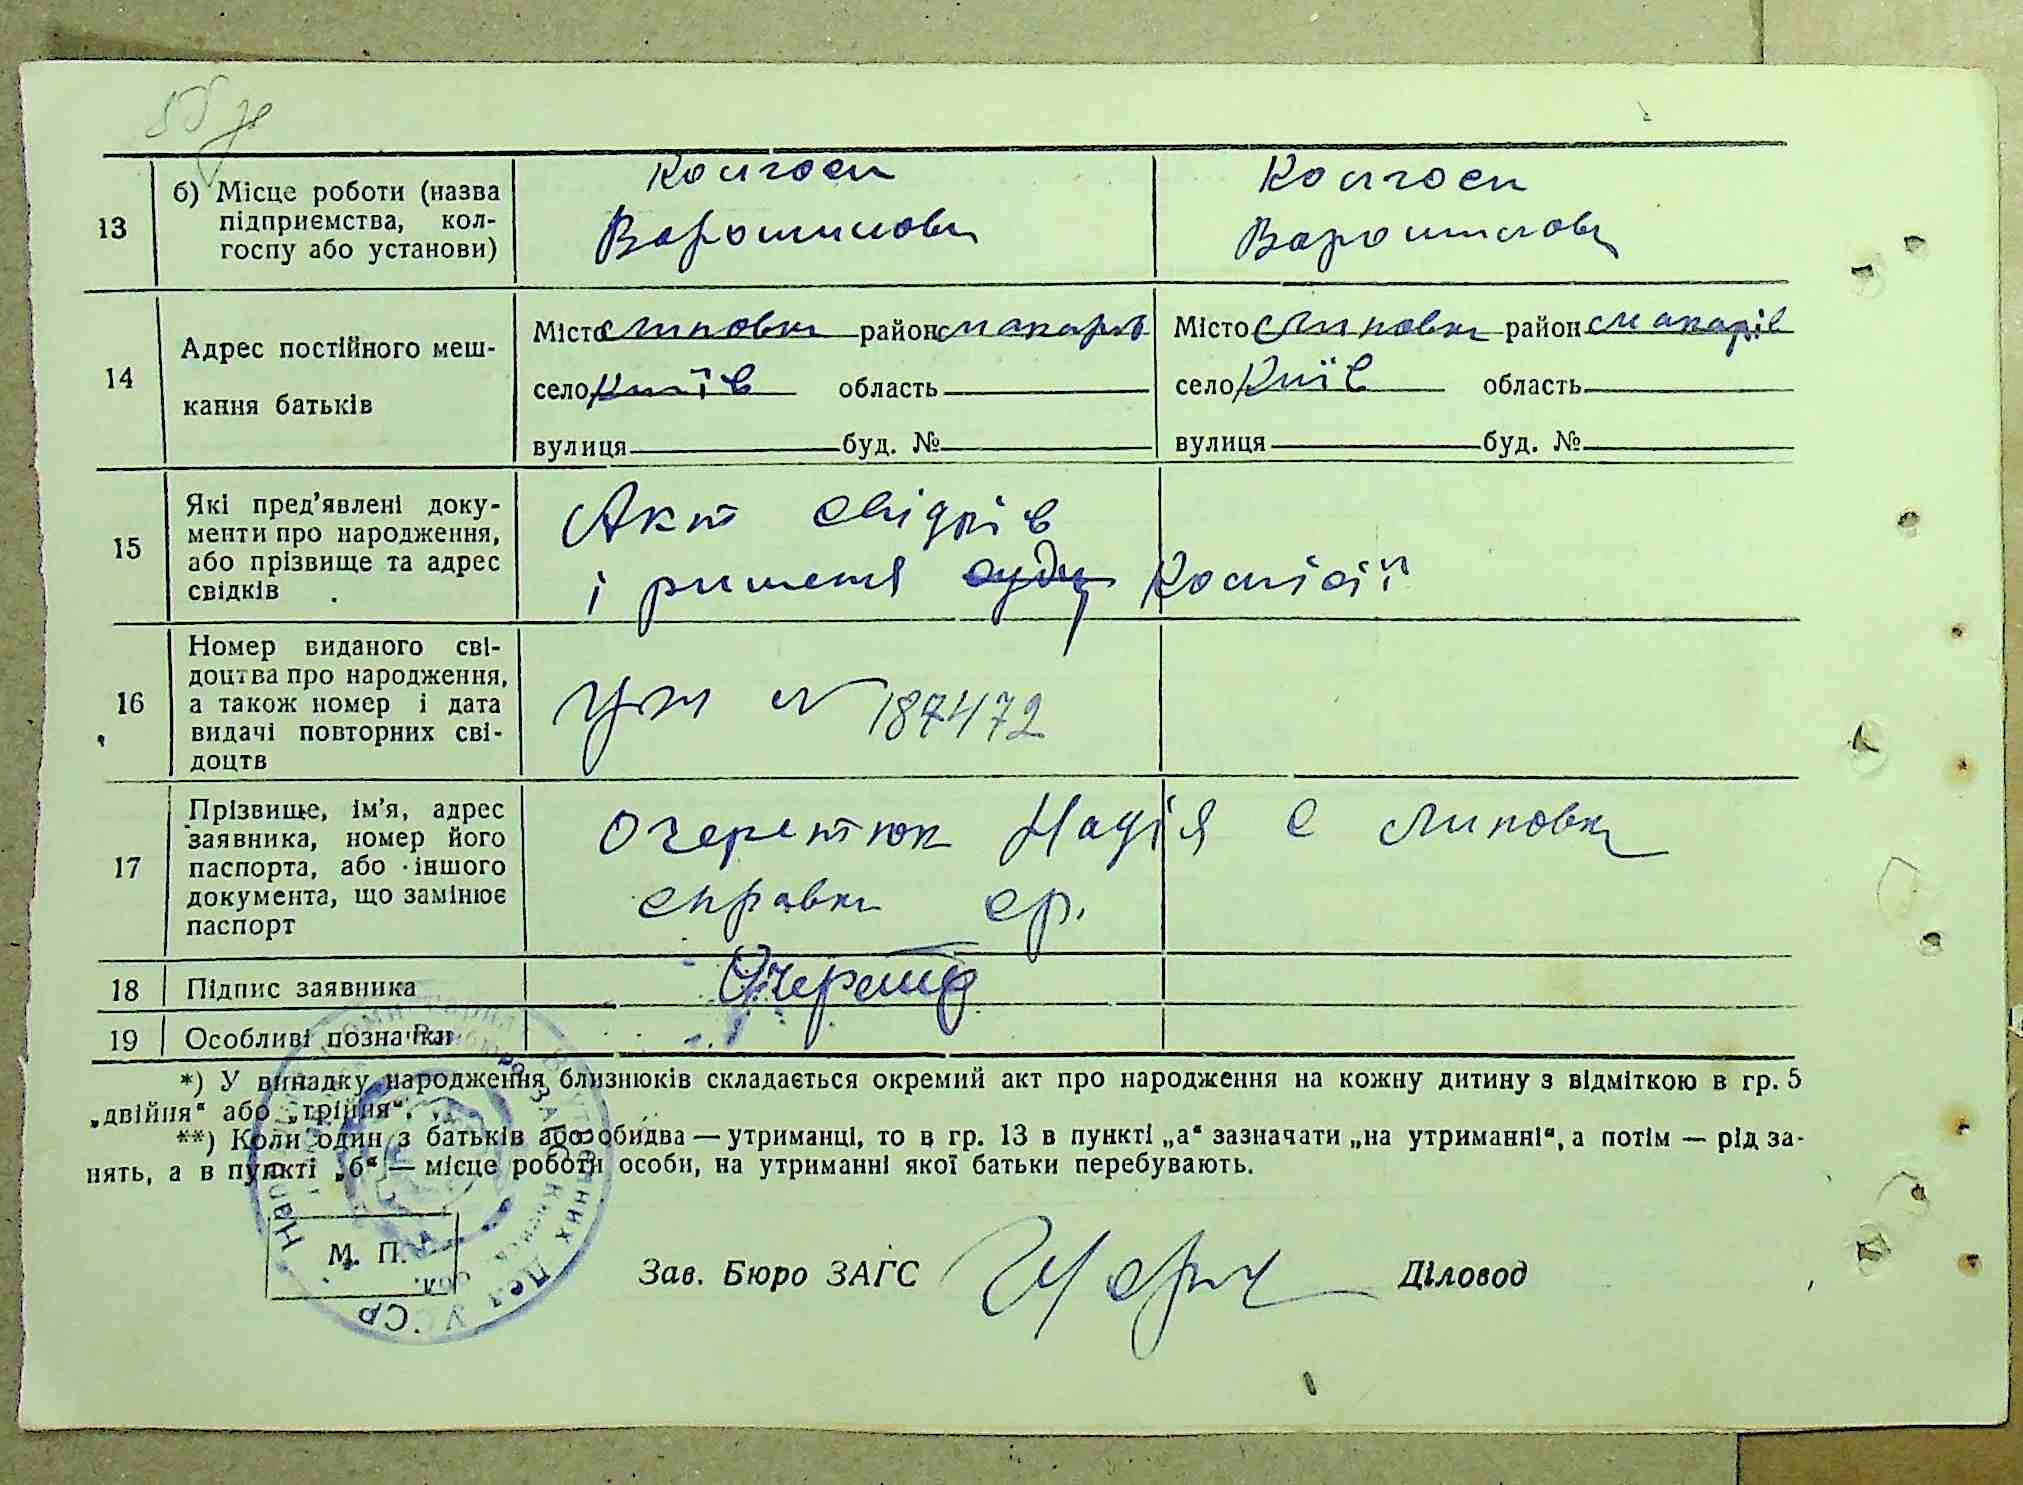 13
б) Місце роботи (назва
підприємства, кол-
госпу або установи)
Колгосп
Ворошилова
Колгосп
Ворошилова
14
Адрес постійного меш-
кання батьків
Місто Липовка район Макарів
село Київ область
вулиця буд. №
Місто Липовка район Макарів
село Київ область
вулиця буд. №
15
Які пред'явлені доку-
менти про народження,
або прізвище та адрес
свідків
Акт свідків
і ришення суду Комісії
16
Номер виданого сві-
доцтва про народження,
а також номер і дата
видачі повторних сві-
доцтв
N 187472
17
Прізвище, ім'я, адрес
заявника, номер його
паспорта, або іншого
документа, що замінює
паспорт
Очеретюк Надія с Липовка
справка ср.
18 Підпис заявника
19 Особливі позначки
*) У випадку народження близнюків складається окремий акт про народження на кожну дитину з відміткою в гр. 5
„двійня“ або „трійня“.
**) Коли один з батьків або обидва — утриманці, то в гр. 13 в пункті „а“ зазначати „на утриманні“, а потім — рід за-
нять, а в пункті „б“ — місце роботи особи, на утриманні якої батьки перебувають.
М. П.
Зав. Бюро ЗАГС
Діловод